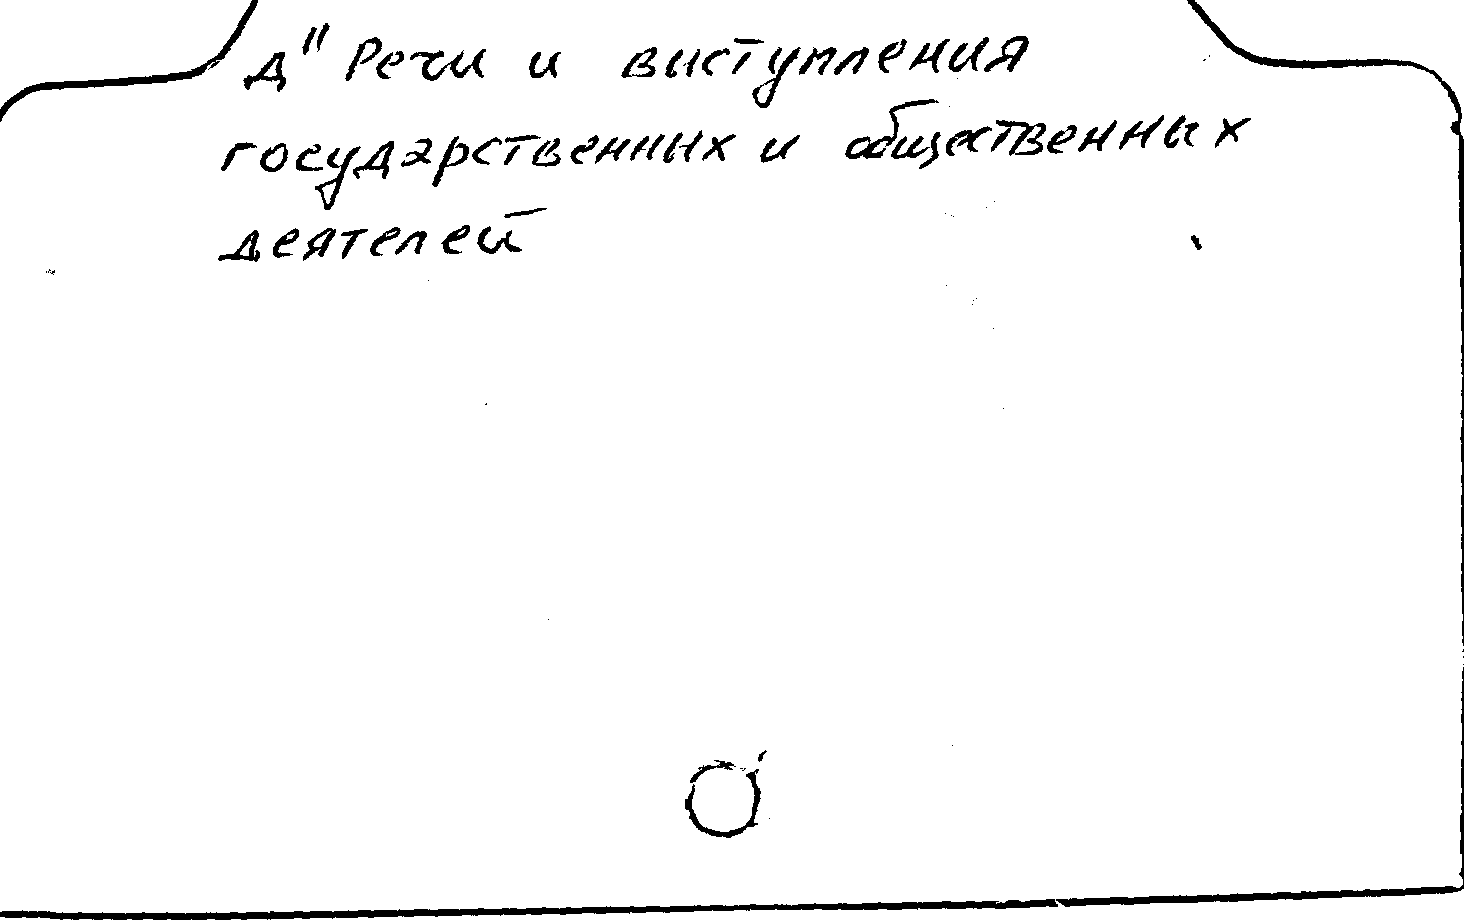 д" Речи и выступления
государственных и общественных
деятелей